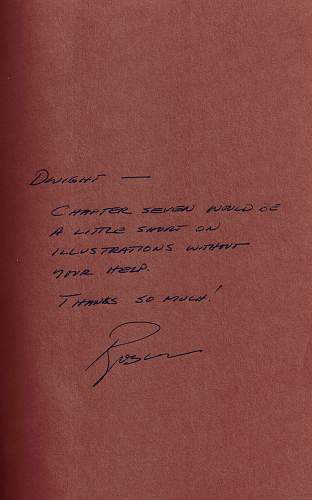 DWIGHT —
CHAPTER SEVEN WOULD BE
A LITTLE SHORT ON
ILLUSTRATIONS WITHOUT
YOUR HELP.
THANKS SO MUCH!